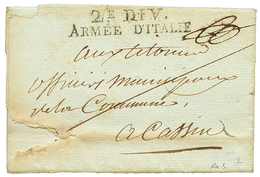 2.E DIV.
ARMÉE D'ITALIE
Aux citoiens
officiers Municipaux
de la Commune,
a Cassine